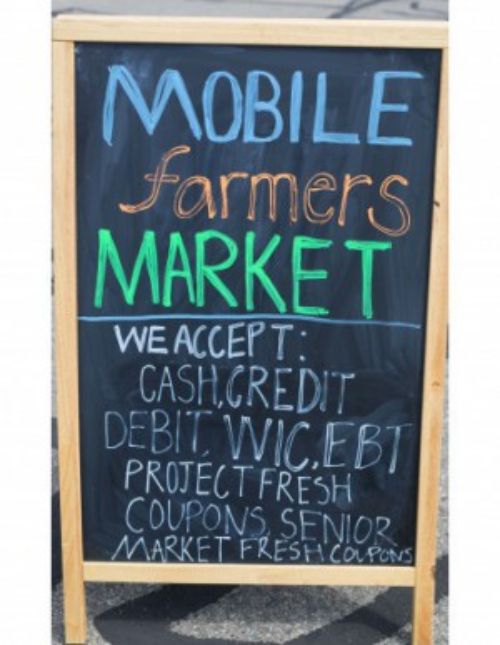 MOBILE
farmers
MARKET
WE ACCEPT:
CASH, CREDIT
DEBIT, WIC, EBT
PROJECT FRESH
COUPONS, SENIOR
MARKET FRESH COUPONS